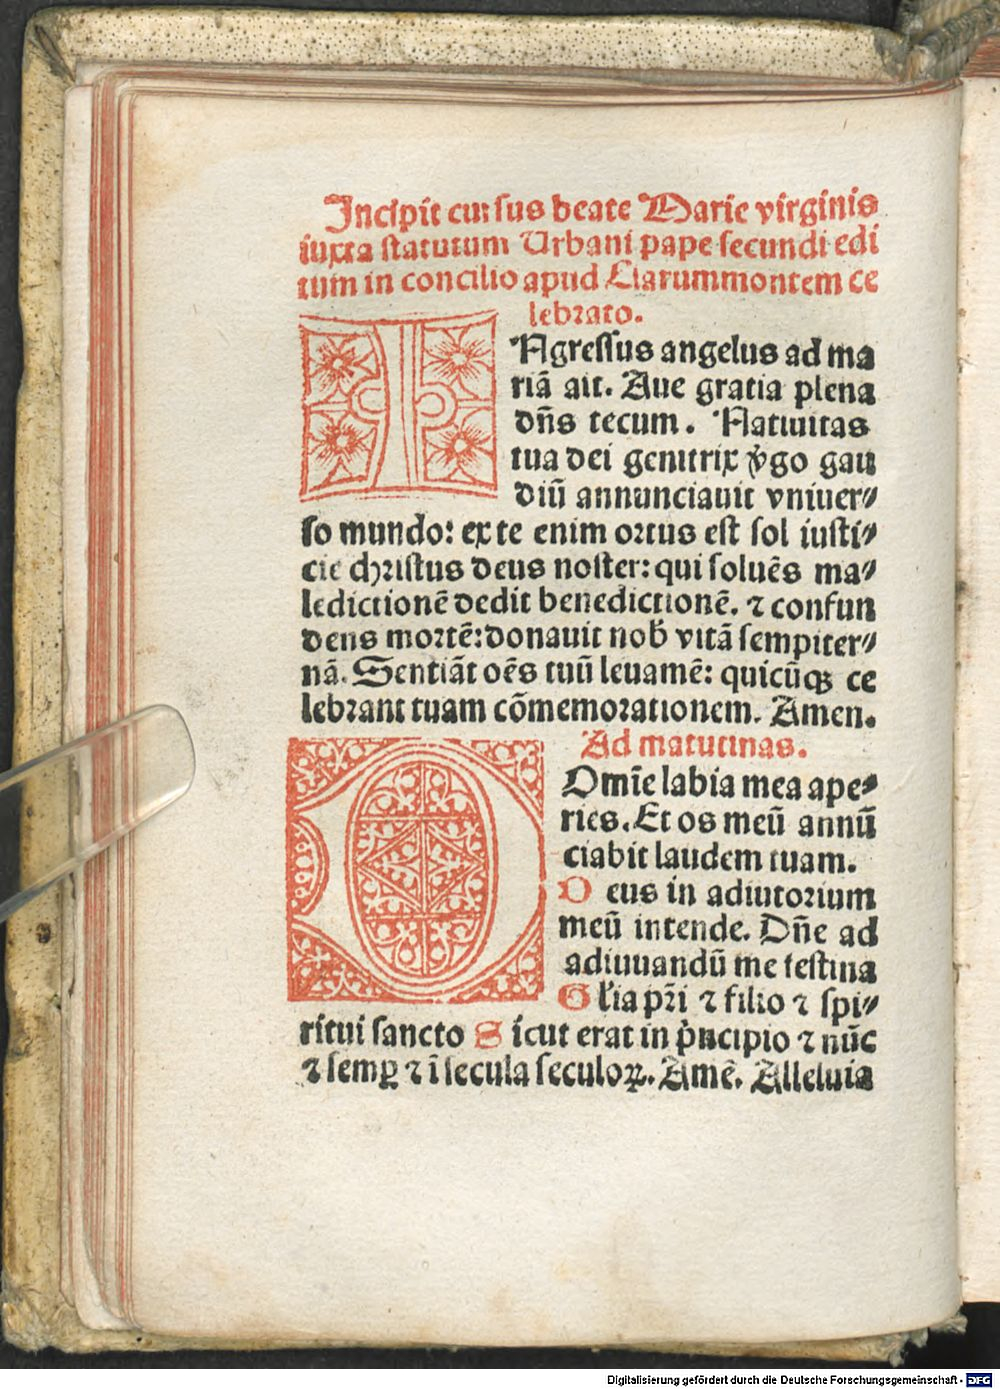 Incipit cursus beate Marie virginis
iuxta statutum Urbani pape secundi edi
tum in concilio apud Clarummontem ce
lebrato.
INgressus angelus ad ma
riā ait. Aue gratia plena
dn̄s tecum. Natiuitas
tua dei genitrix v̓go gau
diū annunciauit vniuer⸗
so mundo: ex te enim ortus est sol iusti⸗
cie christus deus noster: qui soluēs ma⸗
ledictionē dedit benedictionē. ⁊ confun
dens mortē: donauit nob̓ vitā sempiter⸗
nā. Sentiāt oēs tuū leuamē: quicūqꝫ ce
lebrant tuam cōmemorationem. Amen.
Ad matutinas.
DOmīe labia mea ape⸗
ries. Et os meū annū
ciabit laudem tuam.
Deus in adiutorium
meū intende. Dn̄e ad
adiuuandū me festina
Gl̓ia pr̄i ⁊ filio ⁊ spi⸗
ritui sancto Sicut erat in p̓ncipio ⁊ nūc
⁊ semꝑ ⁊ ī secula seculoꝝ. Amē. Alleluia
Digitalisierung gefördert durch die Deutsche Forschungsgemeinschaft - DFG